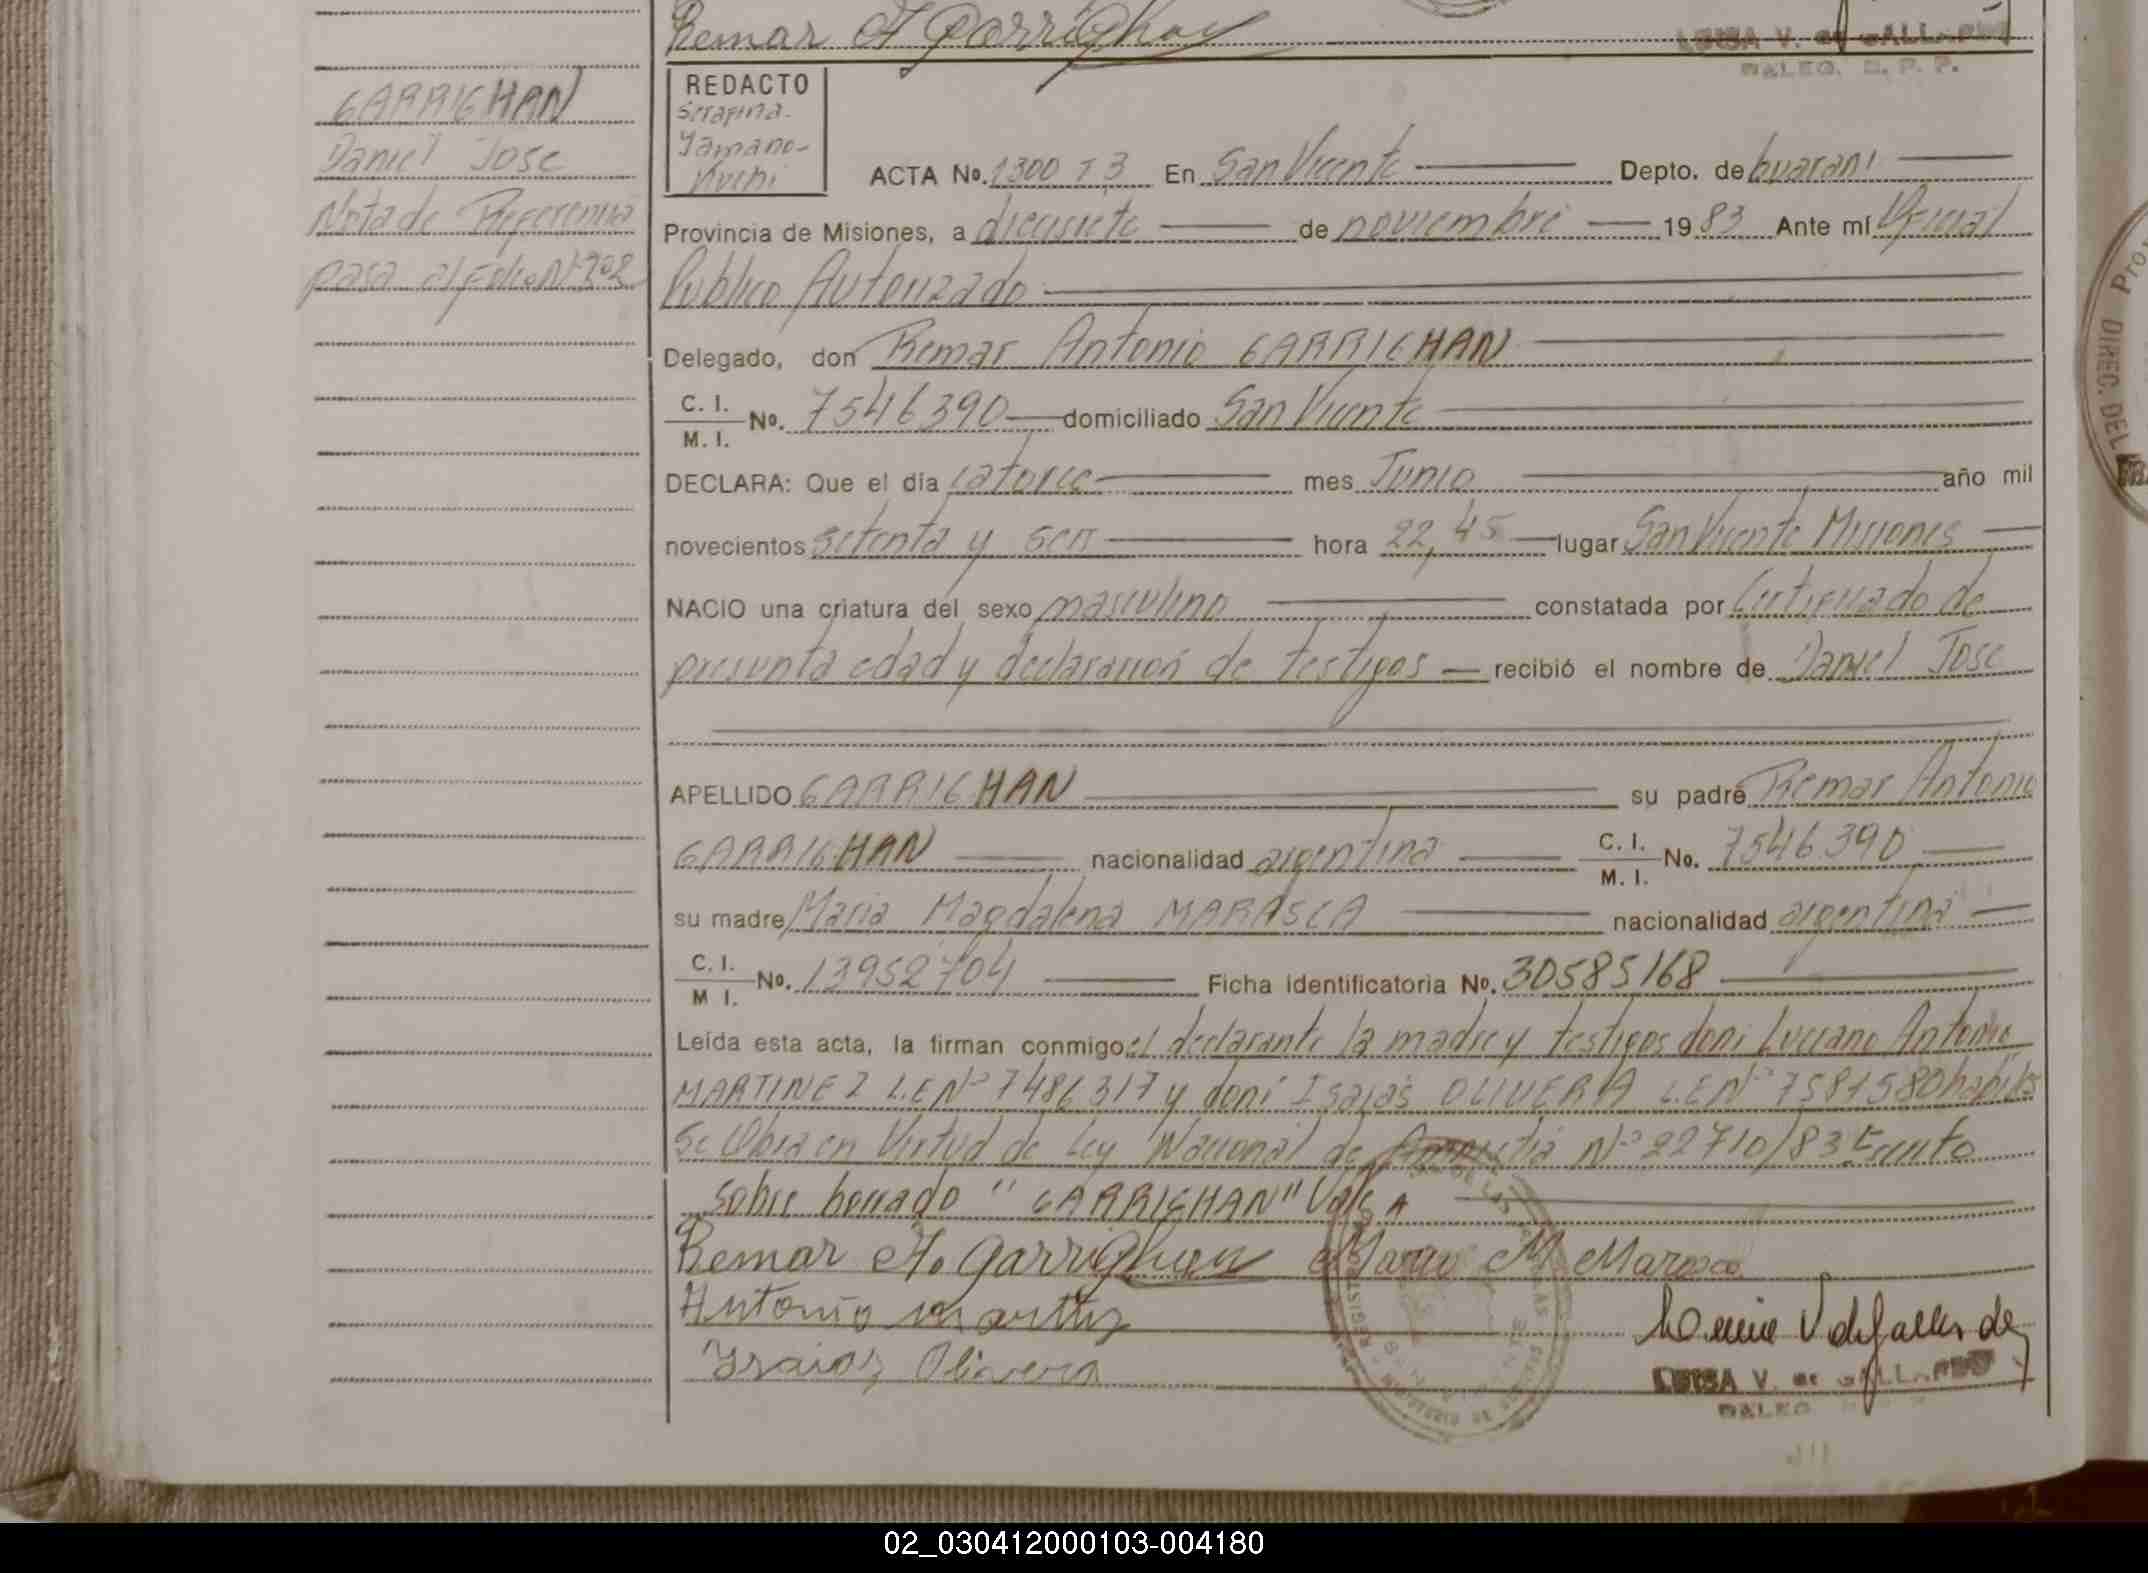 Remar A Garrighan
LUISA V. de GALLARDO
DALEG. R. P. P.
GARRIGHAN
Daniel Jose
Nota de Referencia
pasa al Folio Nº 202
REDACTO
Serafina
Yamano-
Kuchi
ACTA No. 1300 T 3 En San Vicente Depto. de Guarani
Provincia de Misiones, a diecisiete de noviembre 1983 Ante mí Oficial
Publico Autorizado
Delegado, don Remar Antonio GARRIGHAN
C. I.
M. I. No. 7546390 domiciliado San Vicente
DECLARA: Que el día catorce mes Junio año mil
novecientos setenta y seis hora 22,45 lugar San Vicente Misiones
NACIO una criatura del sexo masculino constatada por Certificado de
presunta edad y declaración de testigos recibió el nombre de Daniel Jose
APELLIDO GARRIGHAN su padre Remar Antonio
GARRIGHAN nacionalidad argentina C. I.
M. I. No. 7546390
su madre Maria Magdalena MARASCA nacionalidad argentina
C. I.
M I. No. 13952704 Ficha Identificatoria No. 30585168
Leída esta acta, la firman conmigo el declarante la madre y testigos don: Luciano Antonio
MARTINEZ L.E Nº 7486317 y don: Isaias OLIVERA L.E Nº 7581580 habiles
Se Obra en Virtud de Ley Nacional de Amnistia Nº 22710/83 Escrito
sobre borrado "GARRIGHAN" Vale
Remar A. Garrighan Maria M Marasca
Antonio martinez
Isaias Olivera
LUISA V. de GALLARDO
DALEG
DIREC. DEL
02_030412000103-004180